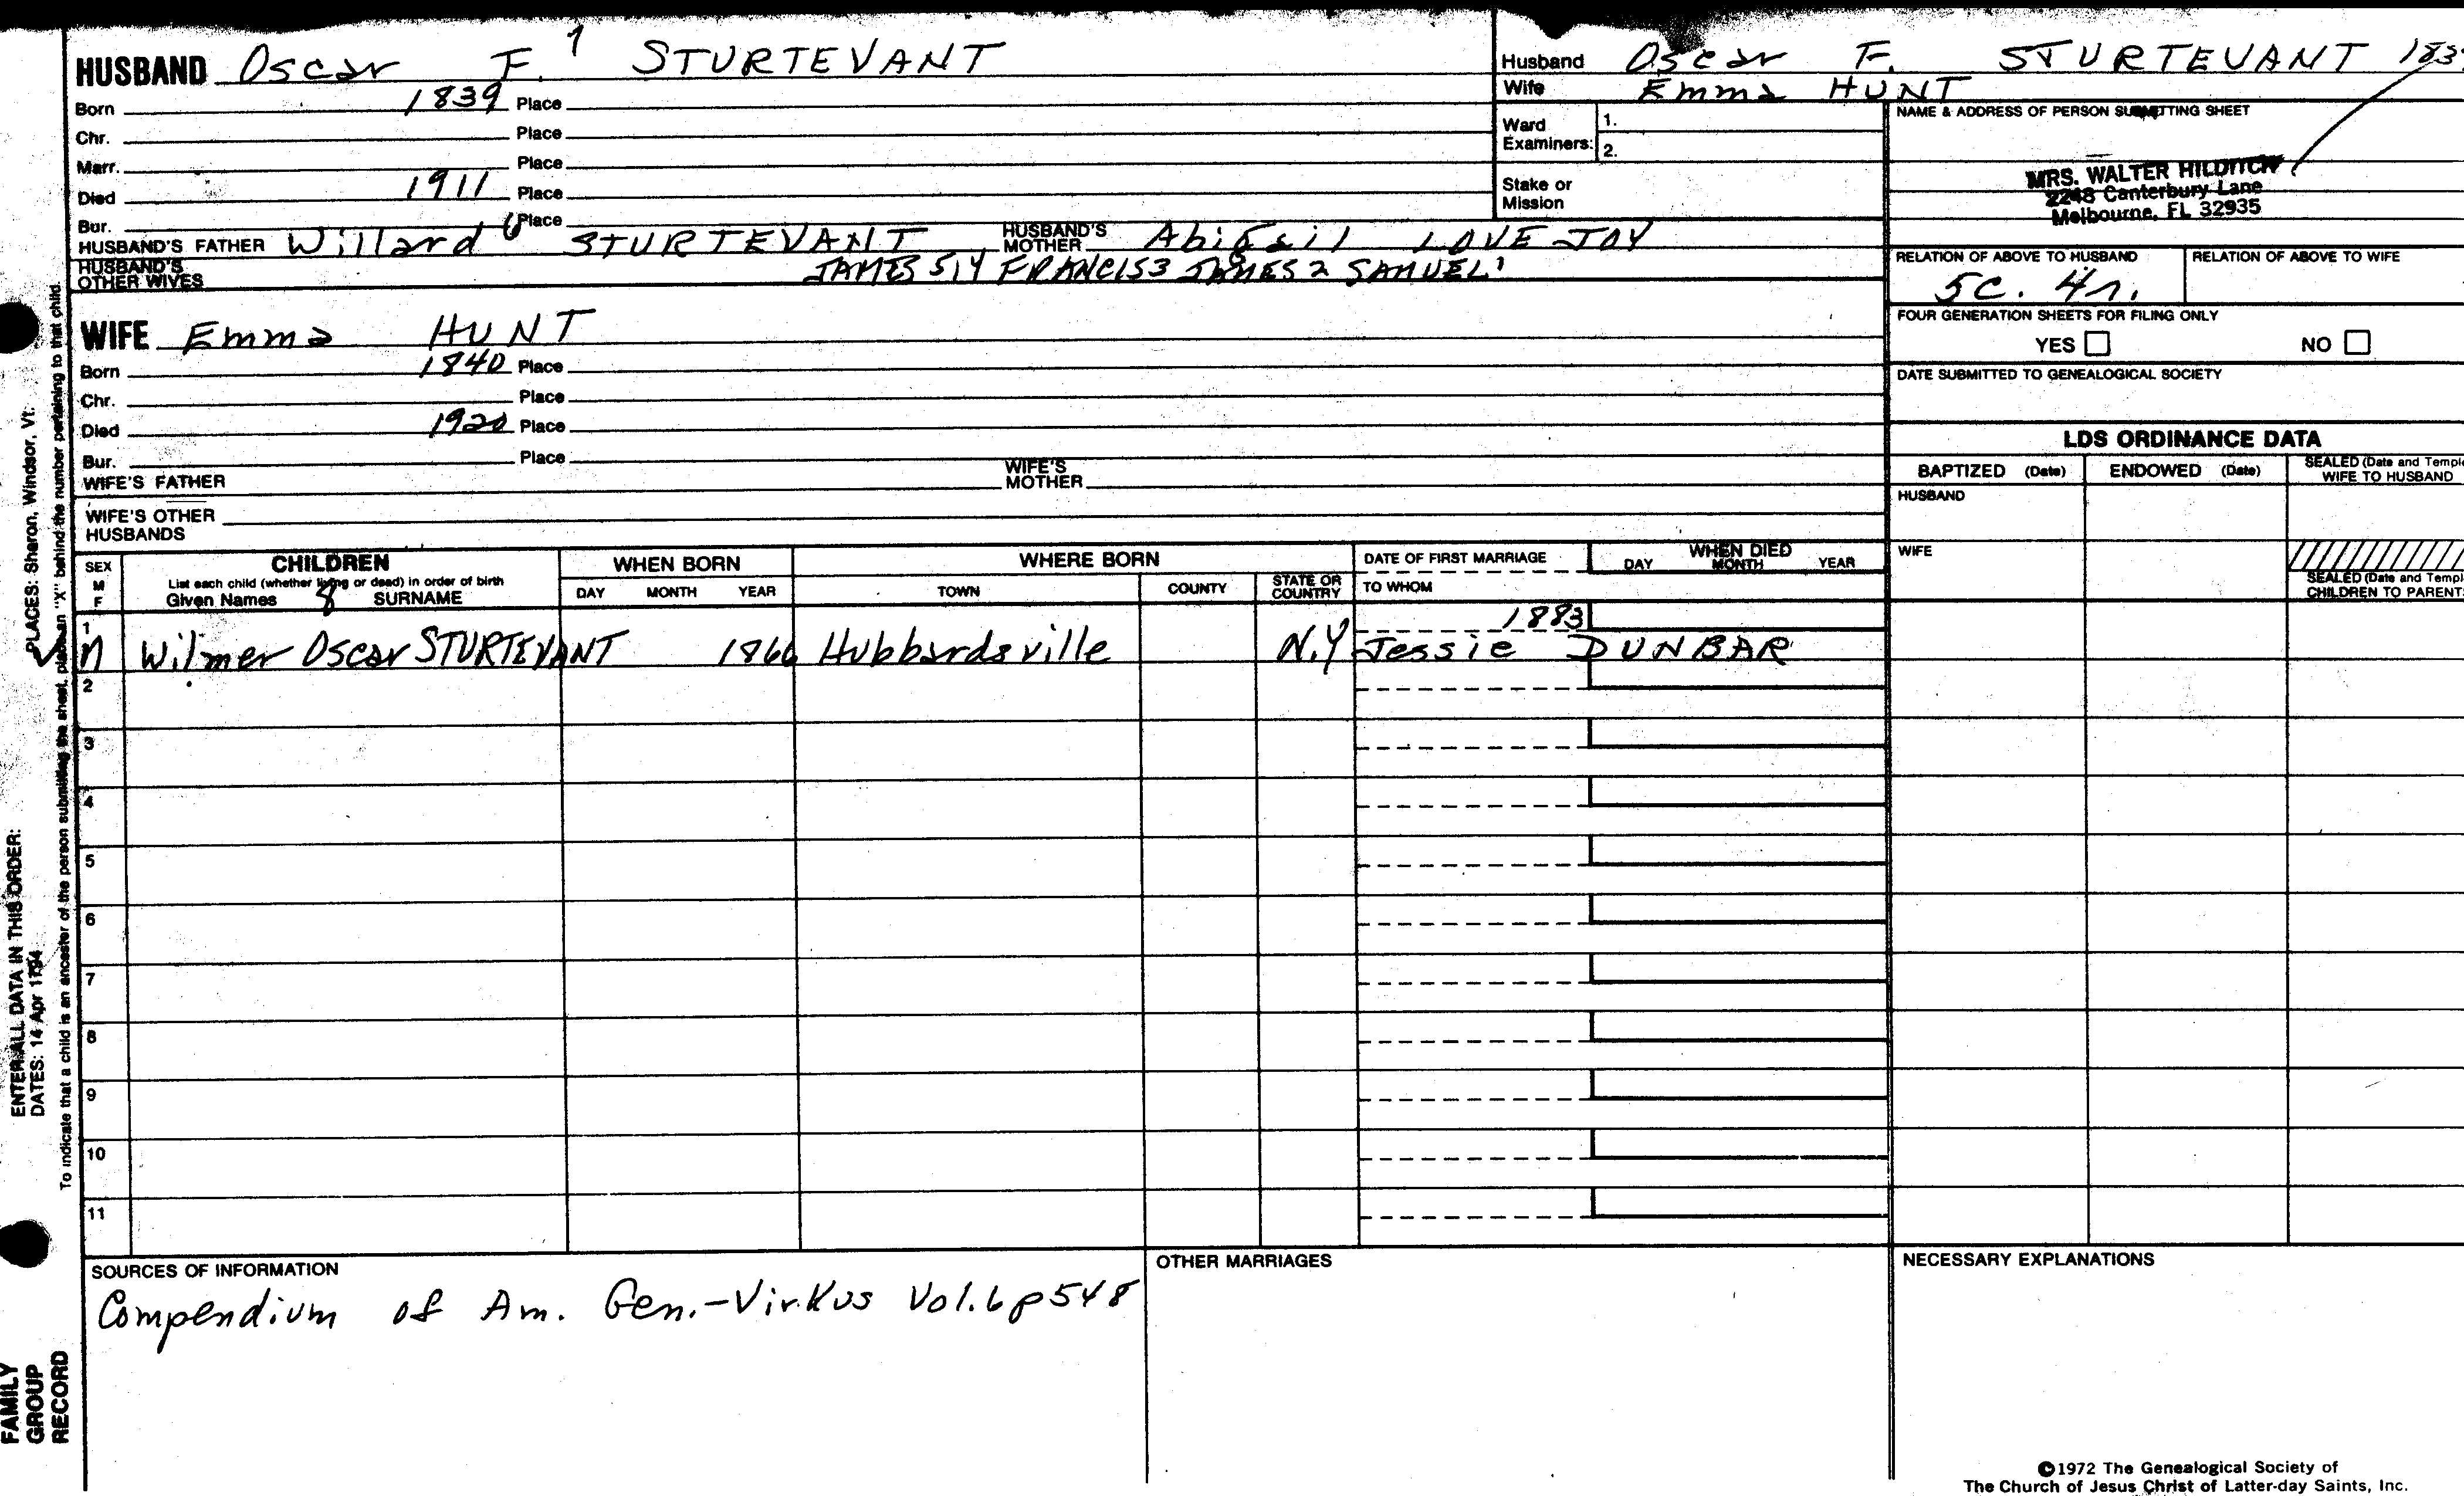 HUSBAND Oscar F. 7 STURTEVANT
Born 1839 Place
Chr. Place
Marr. Place
Died 1911 Place
Bur. Place
HUSBAND'S FATHER Willard 6 STURTEVANT HUSBAND'S MOTHER Abigail LOVEJOY
HUSBAND'S OTHER WIVES JAMES 5,4 FRANCIS3 JAMES 2 SAMUEL1
WIFE Emma HUNT
Born 1840 Place
Chr. Place
Died 1920 Place
Bur. Place
WIFE'S FATHER WIFE'S MOTHER
WIFE'S OTHER HUSBANDS
Husband Oscar F. STURTEVANT 1839
Wife Emma HUNT
Ward Examiners: 1.
2.
Stake or Mission
NAME & ADDRESS OF PERSON SUBMITTING SHEET
MRS. WALTER HILDITCH
2248 Canterbury Lane
Melbourne, FL 32935
RELATION OF ABOVE TO HUSBAND RELATION OF ABOVE TO WIFE
5C. 4r.
FOUR GENERATION SHEETS FOR FILING ONLY
YES NO
DATE SUBMITTED TO GENEALOGICAL SOCIETY
LDS ORDINANCE DATA
BAPTIZED (Date) ENDOWED (Date) SEALED (Date and Temple) WIFE TO HUSBAND
HUSBAND
WIFE
SEALED (Date and Temple) CHILDREN TO PARENTS
SEX M F
CHILDREN
List each child (whether living or dead) in order of birth
Given Names 8 SURNAME
WHEN BORN
DAY MONTH YEAR
WHERE BORN
TOWN COUNTY STATE OR COUNTRY
DATE OF FIRST MARRIAGE
TO WHOM
WHEN DIED
DAY MONTH YEAR
1 1883
M Wilmer Oscar STURTEVANT 1866 Hubbardsville N.Y Jessie DUNBAR
2
3
4
5
6
7
8
9
10
11
SOURCES OF INFORMATION
Compendium of Am. Gen.-Virkus Vol.6 p548
OTHER MARRIAGES
NECESSARY EXPLANATIONS
©1972 The Genealogical Society of
The Church of Jesus Christ of Latter-day Saints, Inc.
PLACES: Sharon, Windsor, Vt.
To indicate that a child is an ancestor of the person submitting the sheet, place an "X" behind the number pertaining to that child.
ENTER ALL DATA IN THIS ORDER:
DATES: 14 Apr 1794
FAMILY
GROUP
RECORD